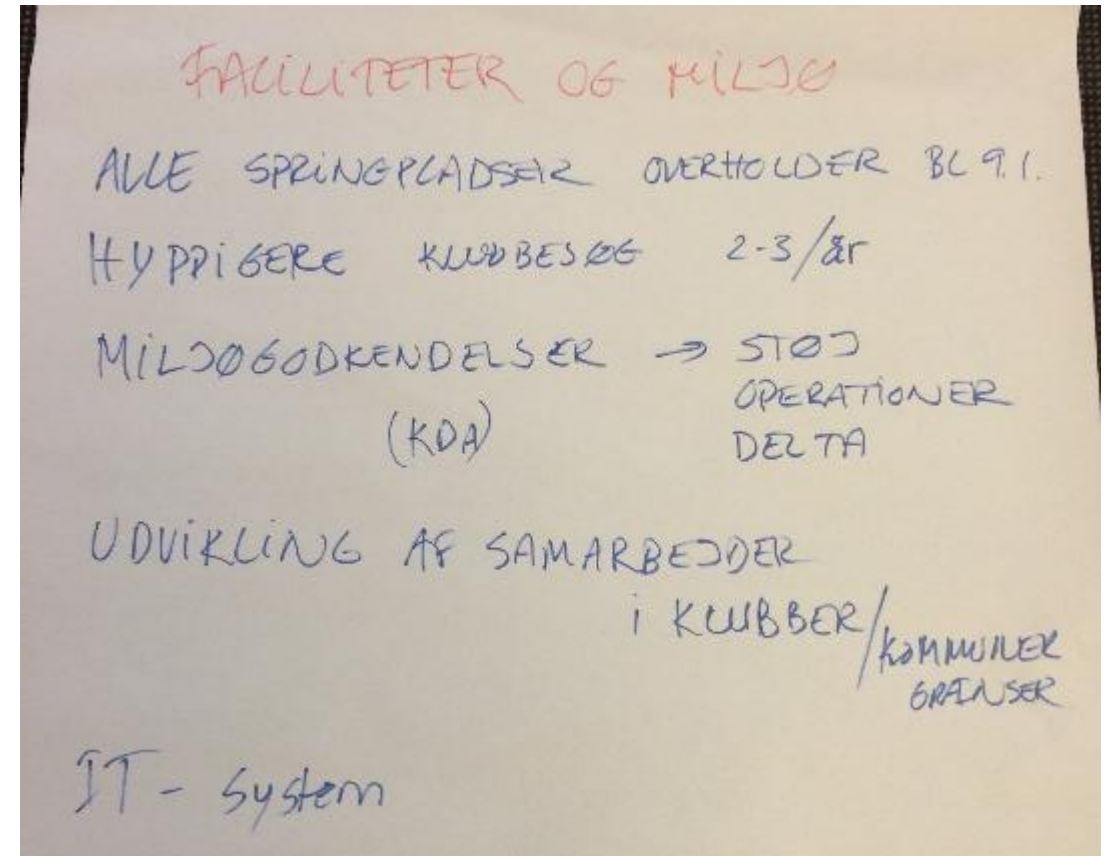 FACILITETER OG MILJØ
ALLE SPRINGPLADSER OVERHOLDER BL 9.1.
HYPPIGERE KLUBBESØG 2-3/år
MILJØGODKENDELSER → STØJ
OPERATIONER
(KDA) DELTA
UDVIKLING AF SAMARBEJDER
i KLUBBER/KOMMUNER
GRÆNSER
IT - System